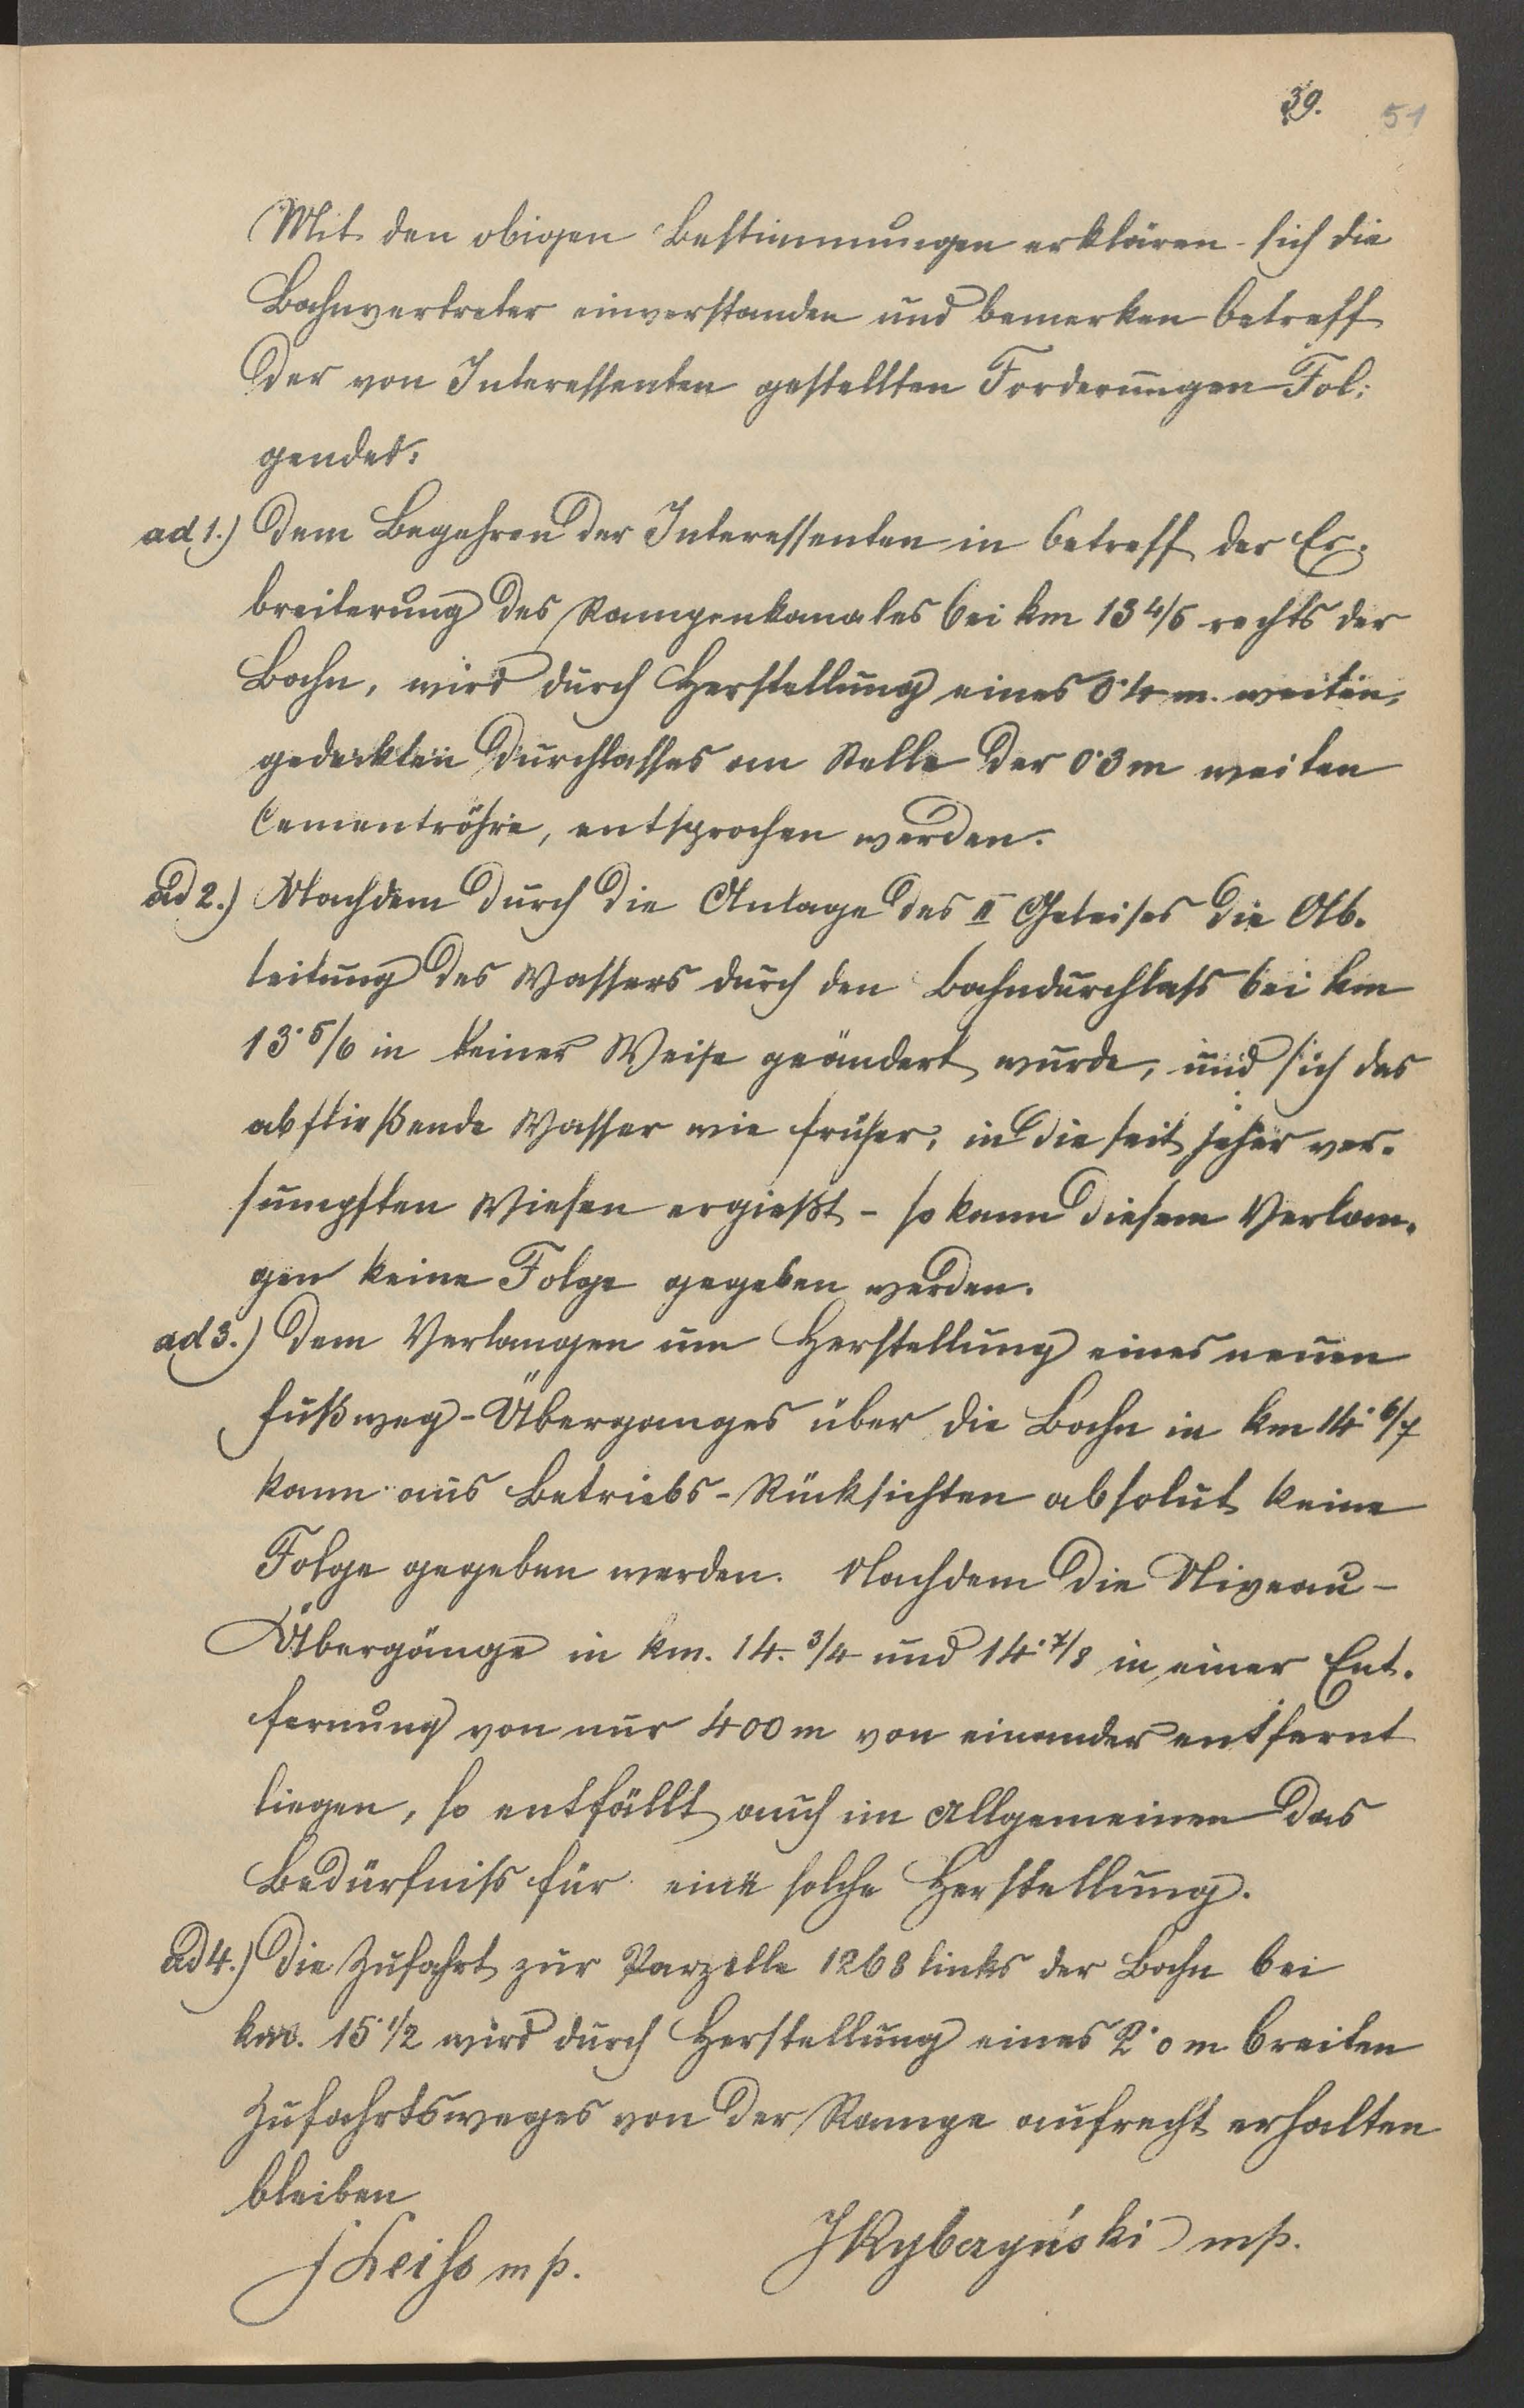 39. 51
Mit den obigen Bestimmungen erklären sich die
Bahnvertreter einverstanden und bemerken betreff
der von Interessenten gestellten Forderungen Fol:
gendes:
ad 1.) Dem Begehren der Interessenten in betreff der Er-
breiterung des Rampenkanales bei km 13 4/5 rechts der
Bahn, wird durch Herstellung eines 0·4 m. weiten,
gedeckten Durchlasses an Stelle der 0·3 m weiten
Cementröhre, entsprochen werden.
ad 2.) Nachdem durch die Anlage des II Geleises die Ab-
leitung des Wassers durch den Bahndurchlass bei km
13·5/6 in keiner Weise geändert wurde, und sich das
abfließende Wasser wie früher, in die seit jeher ver-
sumpften Wiesen ergießt - so kann diesem Verlan-
gen keine Folge gegeben werden.
ad 3.) Dem Verlangen um Herstellung eines neuen
Fußweg-Überganges über die Bahn in km 14·6/7
kann aus Betriebs-Rücksichten absolut keine
Folge gegeben werden. Nachdem die Niveau-
Übergänge in km. 14.3/4 und 14·7/8 in einer Ent-
fernung von nur 400 m von einander entfernt
liegen, so entfällt auch im Allgemeinen das
Bedürfniss für eine solche Herstellung.
ad 4.) Die Zufahrt zur Parzelle 1268 links der Bahn bei
km. 15·1/2 wird durch Herstellung eines 2·0 m breiten
Zufahrtsweges von der Rampe aufrecht erhalten
bleiben
J Rybczyński mp.
mp.